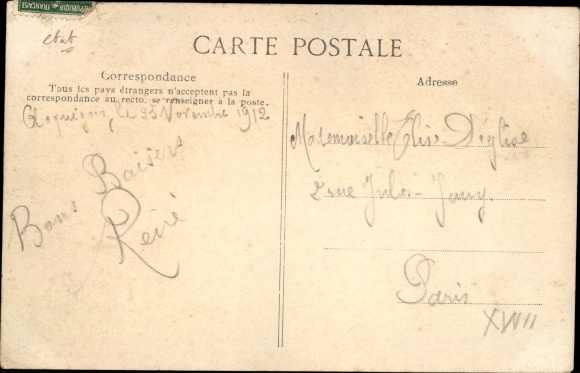 RÉPUBLIQUE FRANÇAISE
état
CARTE POSTALE
Correspondance
Tous les pays étrangers n'acceptent pas la
correspondance au recto, se renseigner à la poste.
le 25 Novembre 1912
Bons Baisers
René
Adresse
Mademoiselle Elise Déglise
2 rue Jules
Paris
XVIII